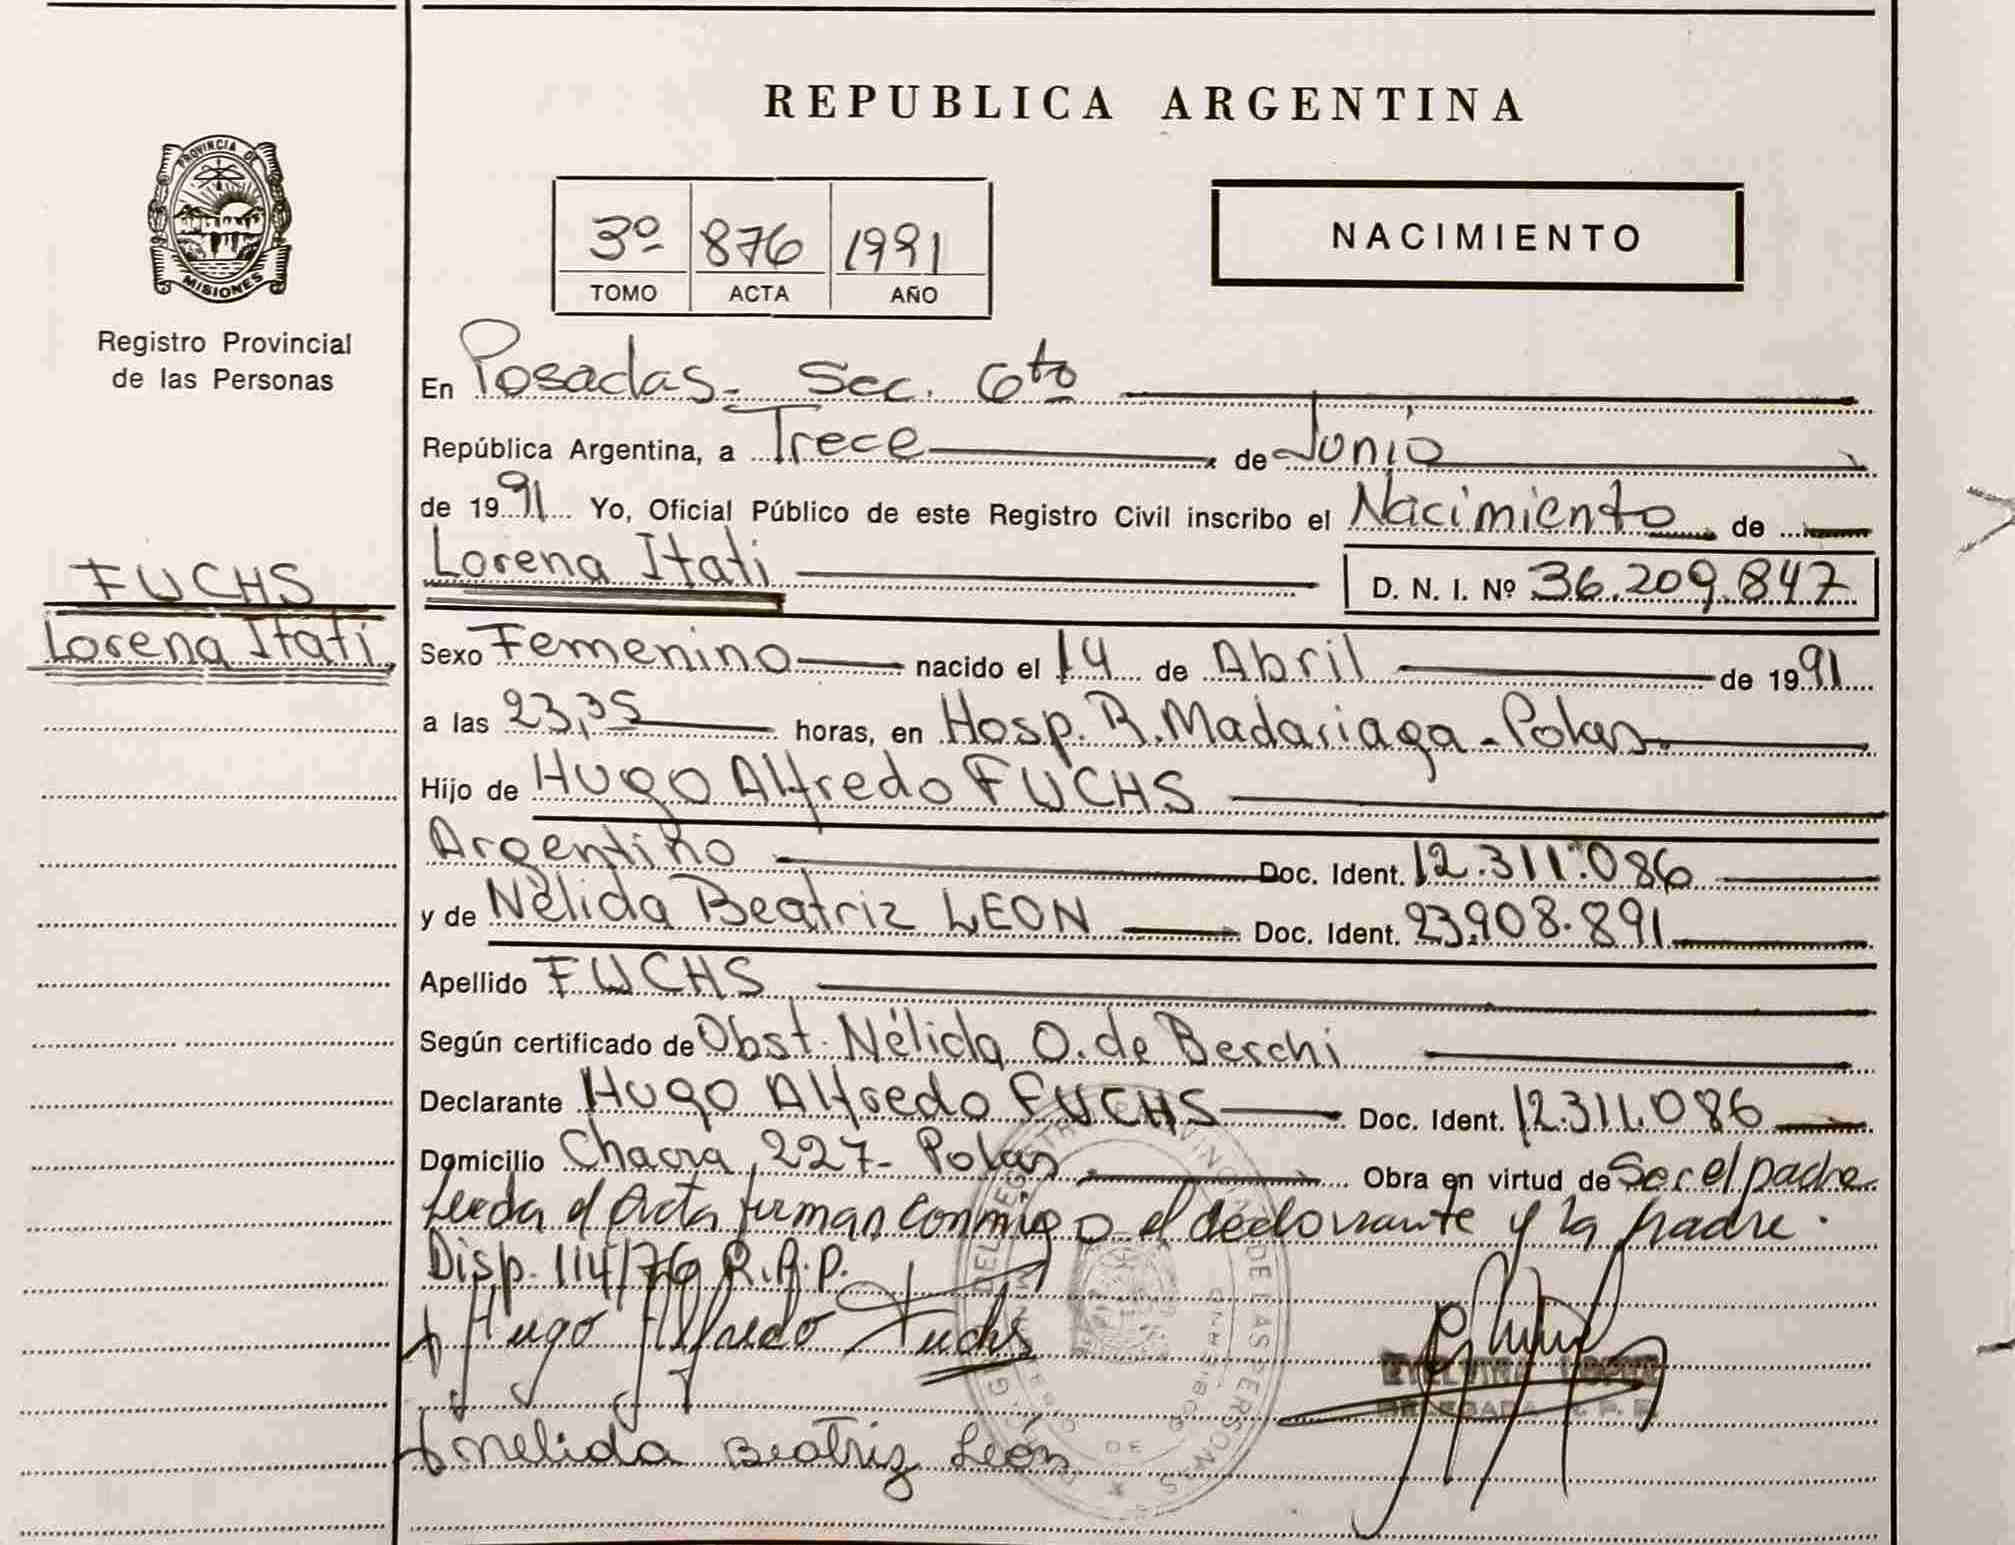 REPUBLICA ARGENTINA
PROVINCIA DE
MISIONES
Registro Provincial
de las Personas
3º 876 1991
TOMO ACTA AÑO
NACIMIENTO
En Posadas- Sec. 6to
República Argentina, a Trece de Junio
de 1991 Yo, Oficial Público de este Registro Civil inscribo el Nacimiento de
Lorena Itati D. N. I. Nº 36.209.847
FUCHS
Lorena Itati
Sexo Femenino nacido el 14 de Abril de 1991
a las 23,35 horas, en Hosp. R. Madariaga - Pdas
Hijo de Hugo Alfredo FUCHS
Argentino Doc. Ident. 12.311.086
y de Nélida Beatriz LEON Doc. Ident. 23.908.891
Apellido FUCHS
Según certificado de Obst. Nélida O. de Berchi
Declarante Hugo Alfredo FUCHS Doc. Ident. 12.311.086
Domicilio Chacra 227- Pdas Obra en virtud de Ser el padre
Leida el Acta firman conmigo el declarante y la madre.
Disp. 114/76 R.P.P.
Hugo Alfredo Fuchs
LOPEZ
DELEGADA R. P. P.
Nelida Beatriz León